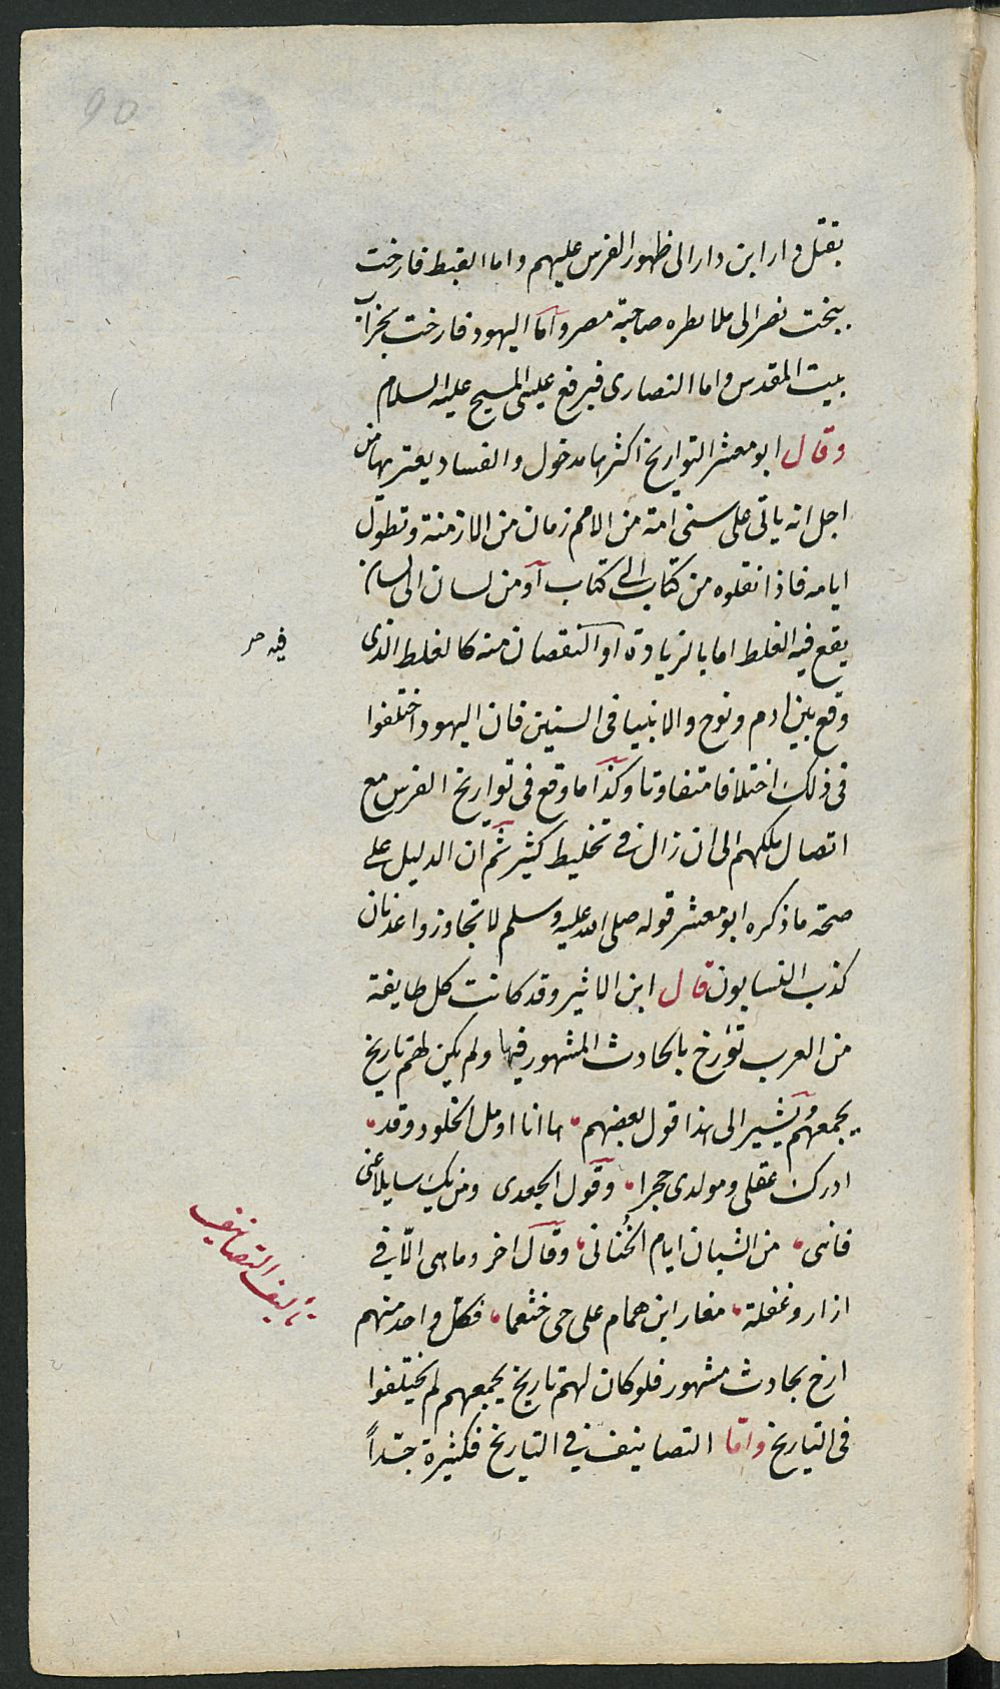 بقتل دارا ابن دارا الى ظهور الفرس عليهم واما القبط فارخت
ببخت نصر الى ملابطره صاحبة مصر واما اليهود فارخت بخراب
بيت المقدس واما النصارى فبرفع عيسى المسيح عليه السلام
وقال ابو معشر التواريخ اكثرها مدخول والفساد يعتريها من
اجل انه ياتى على سنى امة من الامم زمان من الازمنة وتطول
ايامه فاذا نقلوه من كتاب الى كتاب او من لسان الى لسان
يقع فيه الغلط اما بالزيادة او النقصان منه كالغلط الذى
وقع بين ادم ونوح والانبيا فى السنين فان اليهود اختلفوا
فى ذلك اختلافا متفاوتا وكذا ما وقع فى تواريخ الفرس مع
اتصال ملكهم الى ان زال فى تخليط كثير ثم ان الدليل على
صحة ما ذكره ابو معشر قوله صلى الله عليه وسلم لا تجاوزوا عدنان
كذب النسابون قال ابن الاثير وقد كانت كل طايفة
من العرب تؤرخ بالحادث المشهور فيها ولم يكن لهم تاريخ
يجمعهم ويشير الى هذا قول بعضهم ها انا اومل الخلود وقد
ادرك عقلى ومولدى حجرا وقول الجعدى ومن يك سايلا عنى
فانى من الشبان ايام الخنانى وقال اخر وما هى الا فى
ازار وغفلة مغار ابن همام على حى خثعما فكل واحد منهم
ارخ بحادث مشهور فلو كان لهم تاريخ يجمعهم لم يختلفوا
فى التاريخ واما التصانيف فى التاريخ فكثيرة جدا
فيه
التصانيف
90